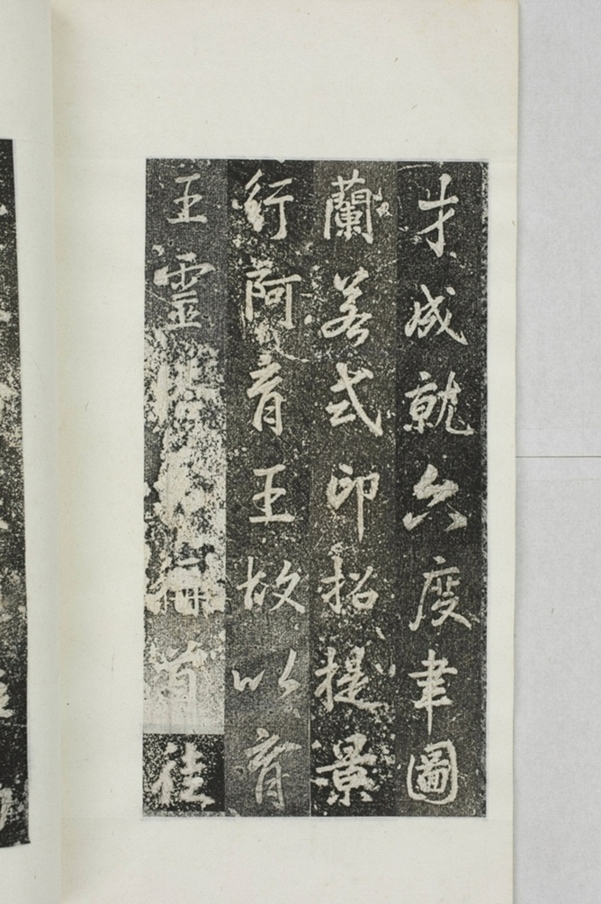 才成就六度聿圖
蘭若式印招提景
行阿育王故以育
王靈塔首往